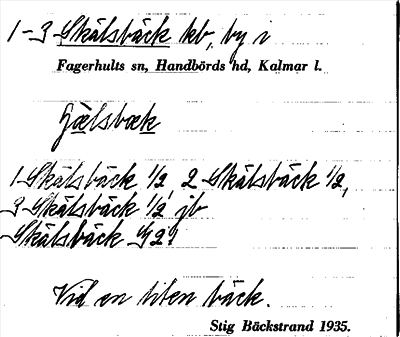 1-3 Skälsbäck kb, by i
Fagerhults sn, Handbörds hd, Kalmar l.
Skälsbäck 1/2, 2 Skälsbäck 1/2,
3 Skälsbäck 1/2 jb
Skälsbäck
Vid en liten bäck.
Stig Bäckstrand 1935.